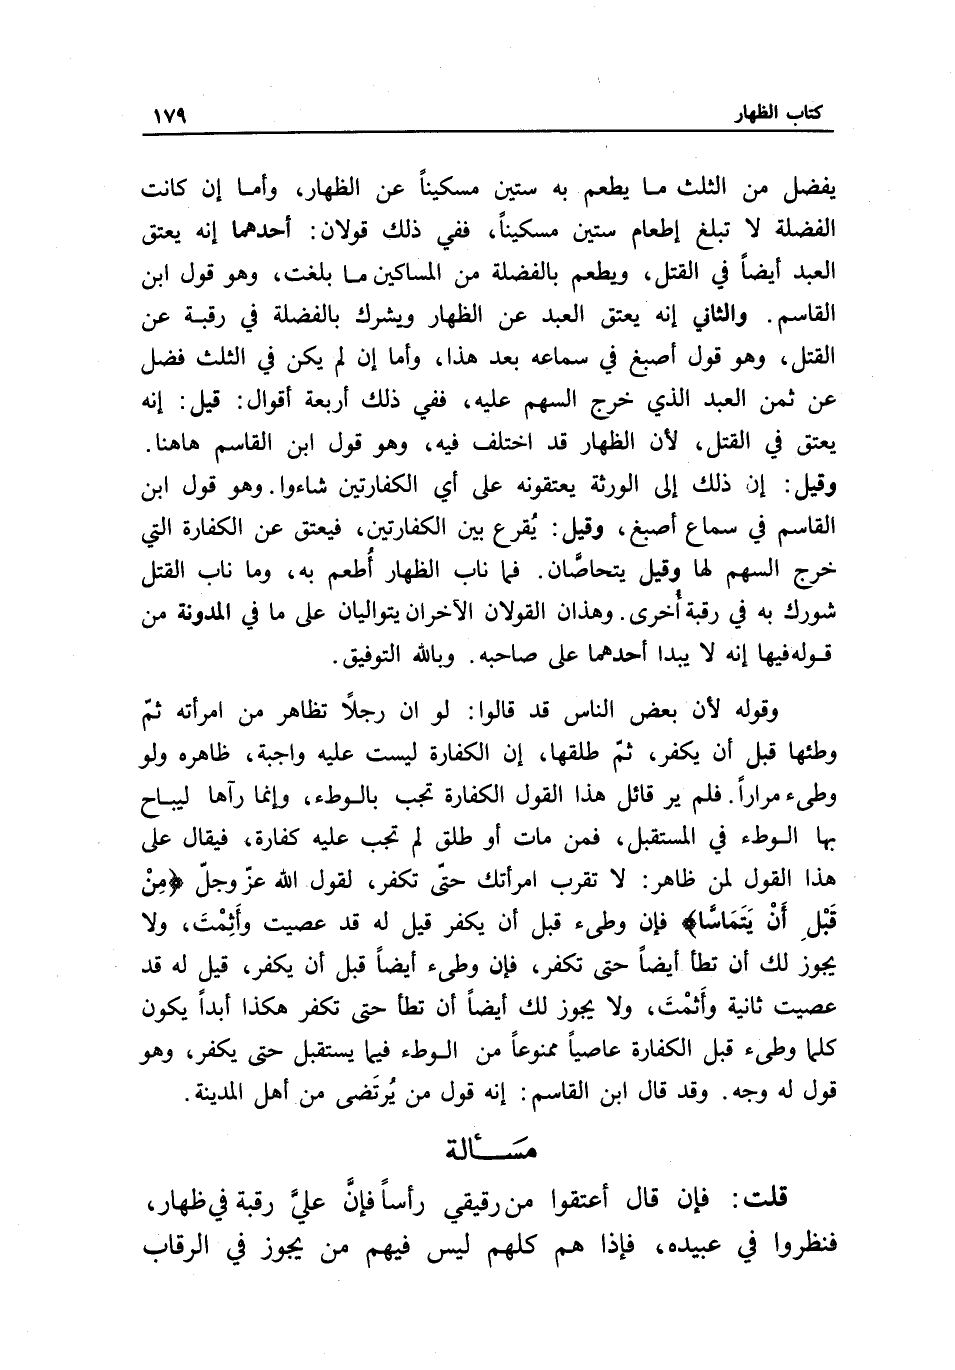 كتاب الظهار ١٧٩
يفضل من الثلث ما يطعم به ستين مسكيناً عن الظهار، وأما إن كانت
الفضلة لا تبلغ إطعام ستين مسكيناً، ففي ذلك قولان: أحدهما إنه يعتق
العبد أيضاً في القتل، ويطعم بالفضلة من المساكين ما بلغت، وهو قول ابن
القاسم. والثاني إنه يعتق العبد عن الظهار ويشرك بالفضلة في رقبة عن
القتل، وهو قول أصبغ في سماعه بعد هذا، وأما إن لم يكن في الثلث فضل
عن ثمن العبد الذي خرج السهم عليه، ففي ذلك أربعة أقوال: قيل: إنه
يعتق في القتل، لأن الظهار قد اختلف فيه، وهو قول ابن القاسم هاهنا.
وقيل: إن ذلك إلى الورثة يعتقونه على أي الكفارتين شاءوا. وهو قول ابن
القاسم في سماع أصبغ، وقيل: يُقرع بين الكفارتين، فيعتق عن الكفارة التي
خرج السهم لها وقيل يتحاصَّان. فما ناب الظهار أُطعم به، وما ناب القتل
شورك به في رقبة أُخرى. وهذان القولان الآخران يتواليان على ما في المدونة من
قوله فيها إنه لا يبدا أحدهما على صاحبه. وبالله التوفيق.
وقوله لأن بعض الناس قد قالوا: لو ان رجلاً تظاهر من امرأته ثمّ
وطئها قبل أن يكفر، ثمّ طلقها، إن الكفارة ليست عليه واجبة، ظاهره ولو
وطىء مراراً. فلم ير قائل هذا القول الكفارة تجب بالوطء، وإنما رآها ليباح
بها الوطء في المستقبل، فمن مات أو طلق لم تجب عليه كفارة، فيقال على
هذا القول لمن ظاهر: لا تقرب امرأتك حتّى تكفر، لقول الله عزّ وجلّ ﴿مِنْ
قَبْلِ أَنْ يَتَمَاسَّا﴾ فإن وطىء قبل أن يكفر قيل له قد عصيت وأَثِمْتَ، ولا
يجوز لك أن تطأ أيضاً حتى تكفر، فإن وطىء أيضاً قبل أن يكفر، قيل له قد
عصيت ثانية وأَثمْتَ، ولا يجوز لك أيضاً أن تطأ حتى تكفر هكذا أبداً يكون
كلما وطىء قبل الكفارة عاصياً ممنوعاً من الوطء فيما يستقبل حتى يكفر، وهو
قول له وجه. وقد قال ابن القاسم: إنه قول من يُرتَضى من أهل المدينة.
مَسْألة
قلت: فإن قال أعتقوا من رقيقي رأساً فإنَّ عليَّ رقبة في ظهار،
فنظروا في عبيده، فإذا هم كلهم ليس فيهم من يجوز في الرقاب